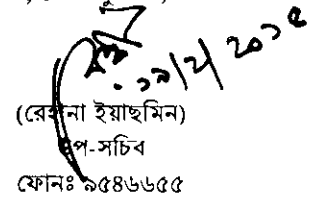 ১৯/২/২০১৫
(রেহানা ইয়াছমিন)
উপ-সচিব
ফোনঃ ৯৫৪৬৬৫৫